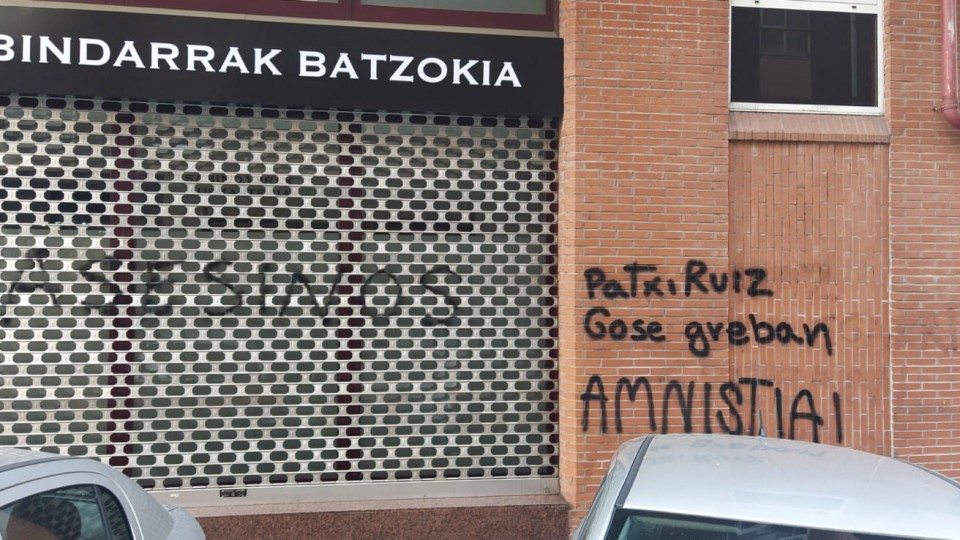 BINDARRAK BATZOKIA
ASESINOS
Patxi Ruiz
Gose greban
AMNISTIA!